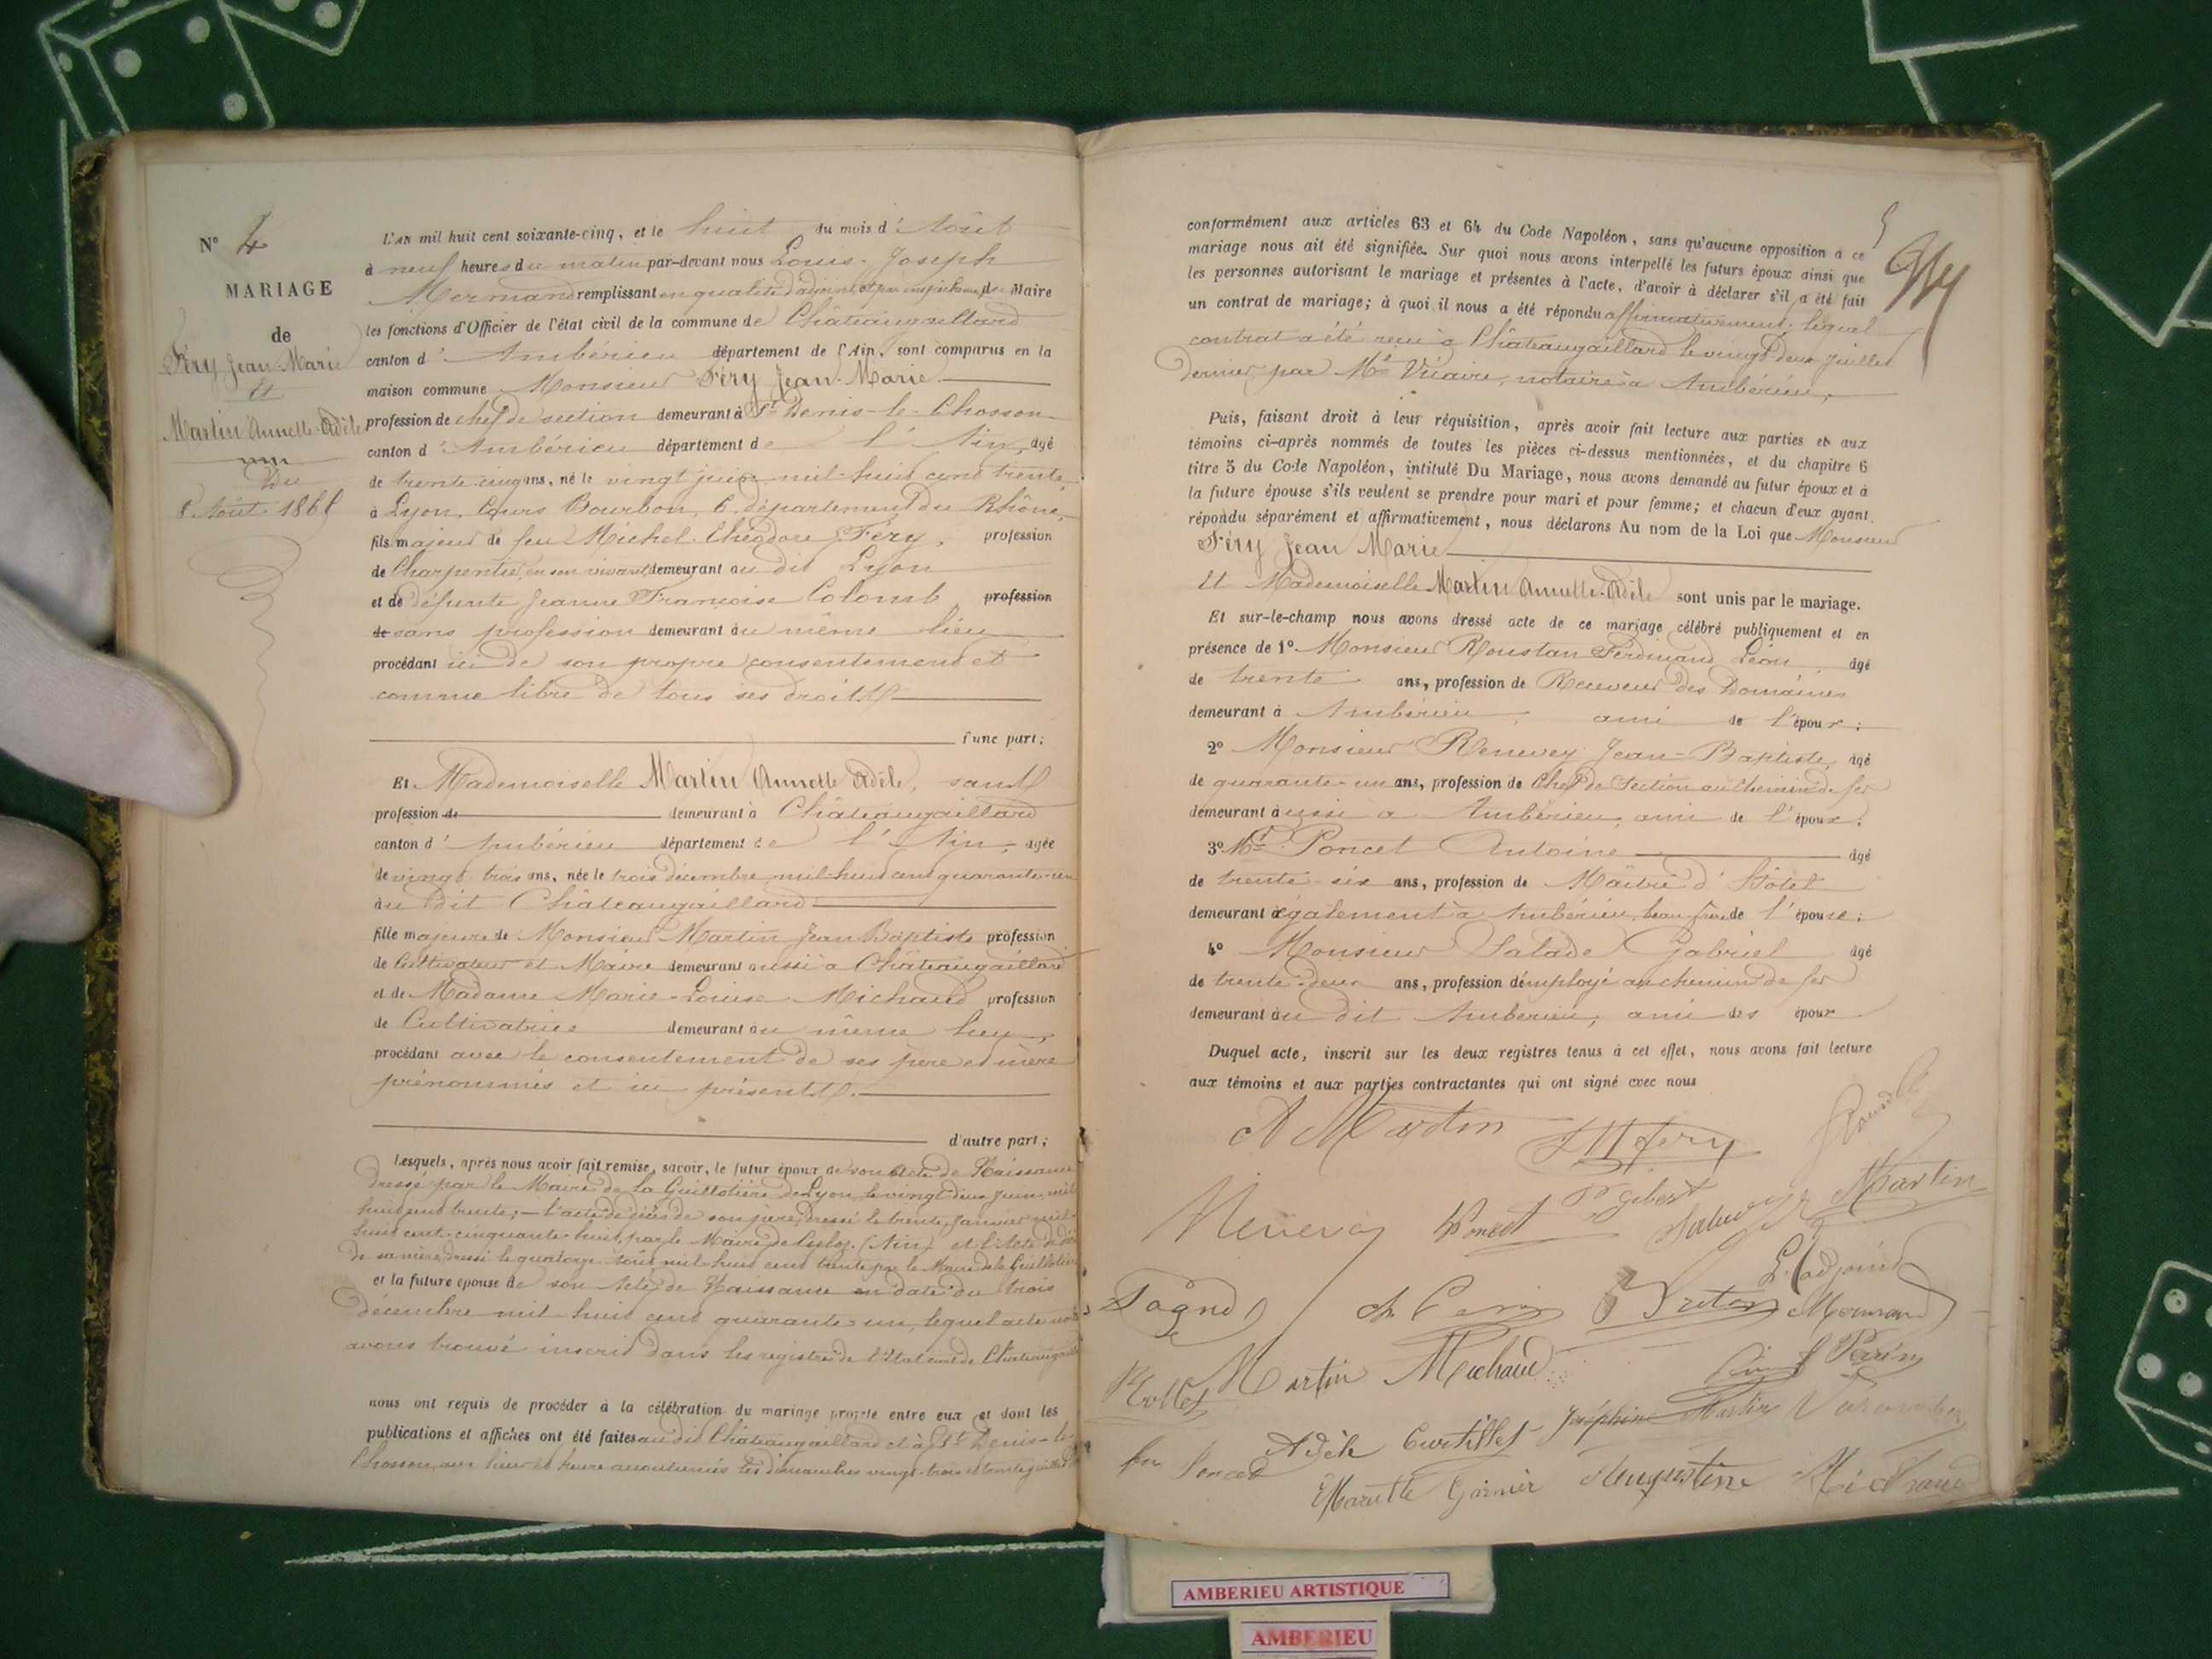 N° 4
MARIAGE
de
Féry Jean-Marie
Et
Martin Annette-Adèle
Du
8 Août 1865
L'AN mil huit cent soixante-cinq, et le huit du mois d'Août
à neuf heures du matin par-devant nous Louis-Joseph
Mermand remplissant en qualité d'adjoint, et par empêchement du Maire
les fonctions d'Officier de l'état civil de la commune de Châteaugaillard
canton d'Ambérieu département de l'Ain, sont comparus en la
maison commune Monsieur Féry Jean-Marie
profession de chef de section demeurant à St Denis-le-Chosson
canton d'Ambérieu département de l'Ain, âgé
de trente cinq ans, né le vingt juin mil-huit cent trente,
à Lyon, Cours Bourbon, 6, département du Rhône,
fils majeur de feu Michel Théodore Féry, profession
de Charpentier, en son vivant, demeurant au dit Lyon
et de défunte Jeanne Françoise Colomb profession
de sans profession demeurant au même lieu
procédant ici de son propre consentement et
comme libre de tous ses droits
d'une part;
Et Mademoiselle Martin Annette Adèle, sans
profession de demeurant à Châteaugaillard
canton d'Ambérieu département de l'Ain, âgée
de vingt-trois ans, née le trois décembre mil-huit cent quarante-un
au dit Châteaugaillard
fille majeure de Monsieur Martin Jean Baptiste profession
de Cultivateur et Maire demeurant aussi à Châteaugaillard
et de Madame Marie-Louise Michaud profession
de Cultivatrice demeurant au même lieu,
procédant avec le consentement de ses père et mère
prénommés et ici présents.
d'autre part;
Lesquels, après nous avoir fait remise, savoir, le futur époux de son Acte de Naissance
dressé par le Maire de la Guillotière de Lyon, le vingt deux juin mil
huit cent trente; — l'acte de décès de son père, dressé le trente Janvier mil
huit cent cinquante-huit, par le Maire de Culoz (Ain) et l'Acte de décès
de sa mère, dressé le quatorze août mil-huit cent trente par le Maire de la Guillotière
et la future épouse de son Acte de Naissance en date du trois
décembre mil-huit cent quarante-un, lequel acte nous
avons trouvé inscrit dans les registres de l'état civil de Châteaugaillard
nous ont requis de procéder à la célébration du mariage projeté entre eux et dont les
publications et affiches ont été faites au dit Châteaugaillard et à St Denis-le-
Chosson, aux lieux et heure accoutumés les dimanches vingt-trois et trente juillet
5
conformément aux articles 63 et 64 du Code Napoléon, sans qu'aucune opposition à ce
mariage nous ait été signifiée. Sur quoi nous avons interpellé les futurs époux ainsi que
les personnes autorisant le mariage et présentes à l'acte, d'avoir à déclarer s'il a été fait
un contrat de mariage; à quoi il nous a été répondu affirmativement. lequel
contrat a été reçu à Châteaugaillard le vingt deux juillet
dernier par Me Vicaire, notaire à Ambérieu,
Puis, faisant droit à leur réquisition, après avoir fait lecture aux parties et aux
témoins ci-après nommés de toutes les pièces ci-dessus mentionnées, et du chapitre 6
titre 5 du Code Napoléon, intitulé Du Mariage, nous avons demandé au futur époux et à
la future épouse s'ils veulent se prendre pour mari et pour femme; et chacun d'eux ayant
répondu séparément et affirmativement, nous déclarons Au nom de la Loi que Monsieur
Féry Jean Marie
Et Mademoiselle Martin Annette-Adèle sont unis par le mariage.
Et sur-le-champ nous avons dressé acte de ce mariage célébré publiquement et en
présence de 1° Monsieur Roustan Ferdinand Léon âgé
de trente ans, profession de Receveur des Domaines
demeurant à Ambérieu, ami de l'époux;
2° Monsieur Renevey Jean-Baptiste, âgé
de quarante-un ans, profession de Chef de Section au Chemin de fer
demeurant aussi à Ambérieu, ami de l'époux;
3° Mr Poncet Antoine âgé
de trente-six ans, profession de Maître d'Hôtel
demeurant également à Ambérieu, beau-frère de l'épouse;
4° Monsieur Salade Gabriel âgé
de trente-deux ans, profession d'employé au chemin de fer
demeurant au dit Ambérieu, ami des époux.
Duquel acte, inscrit sur les deux registres tenus à cet effet, nous avons fait lecture
aux témoins et aux parties contractantes qui ont signé avec nous
A Martin J M fery
Renevey Poncet Gibert Martin
L'adjoint
Mermand
Martin Michaud Perin
Adèle Curtillet Joséphine Martin
Poncet Mariette Garnier Augustine Michaud
AMBERIEU ARTISTIQUE
AMBERIEU